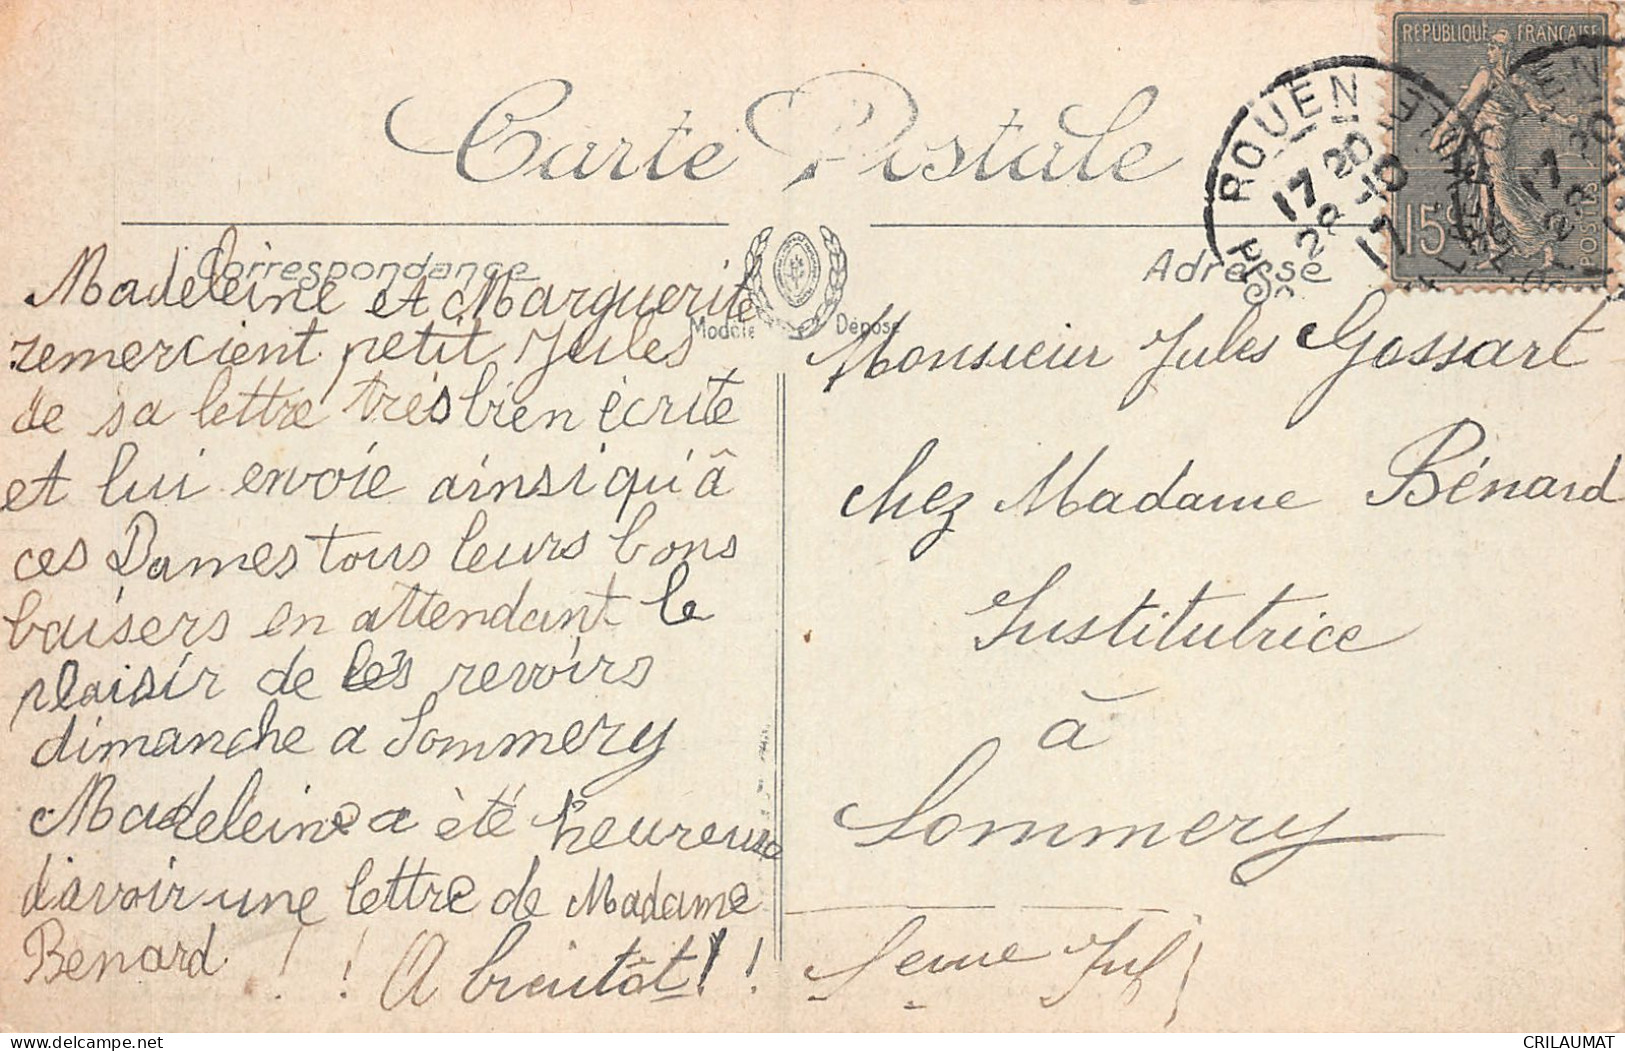 Carte Postale
Correspondance
Adresse
Modèle Déposé
RÉPUBLIQUE FRANÇAISE
15c
POSTES
ROUEN
17 20
28 -10
17
Madeleine et Marguerite
remercient petit Jules
de sa lettre très bien ècrite
et lui envoie ainsi qu'â
ces Dames tous leurs bons
baisers en attendant le
plaisir de les revoirs
dimanche a Sommery
Madeleine a èté heureuse
d'avoir une lettre de Madame
Benard ! ! A bientôt ! !
Monsieur Jules Gossart
chez Madame Bénard
Institutrice
à
Sommery
Seine Inf
CRILAUMAT